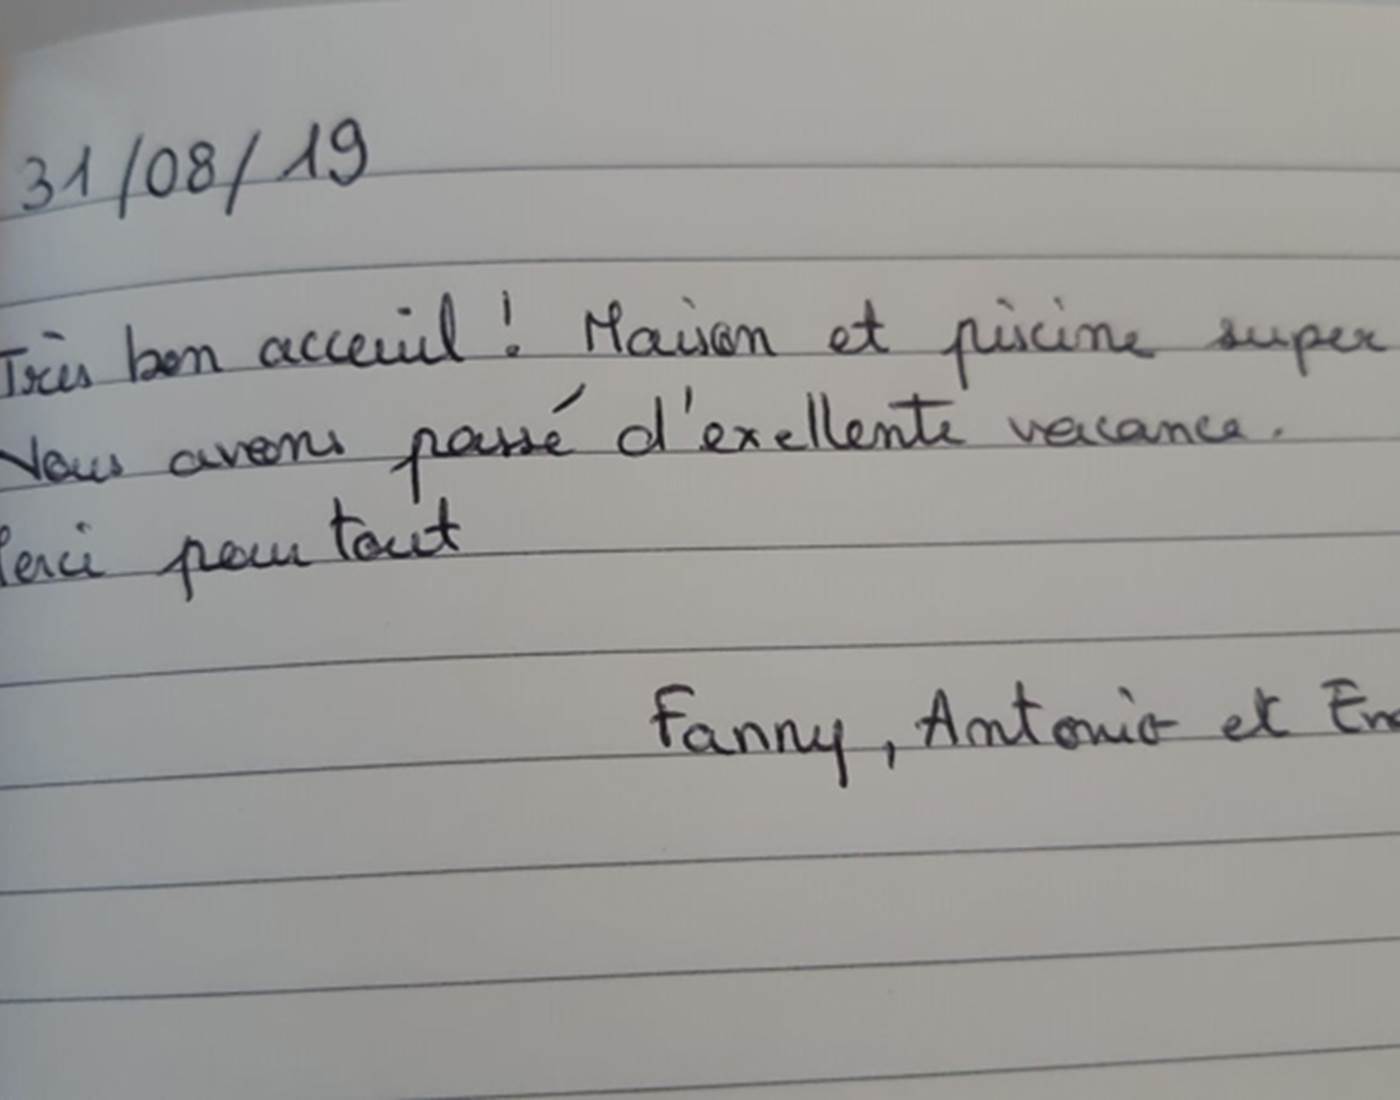 31/08/19
Très bon acceuil ! Maison et piscine super
Nous avons passé d'exellente vacance.
erci pour tout
Fanny, Antonio et Em